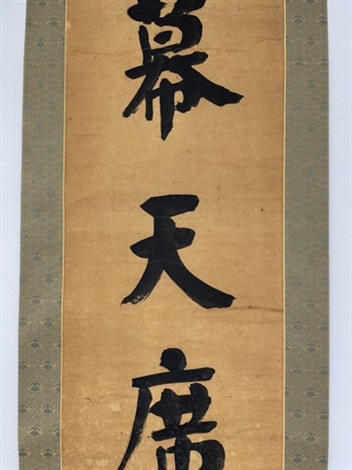 幕天席